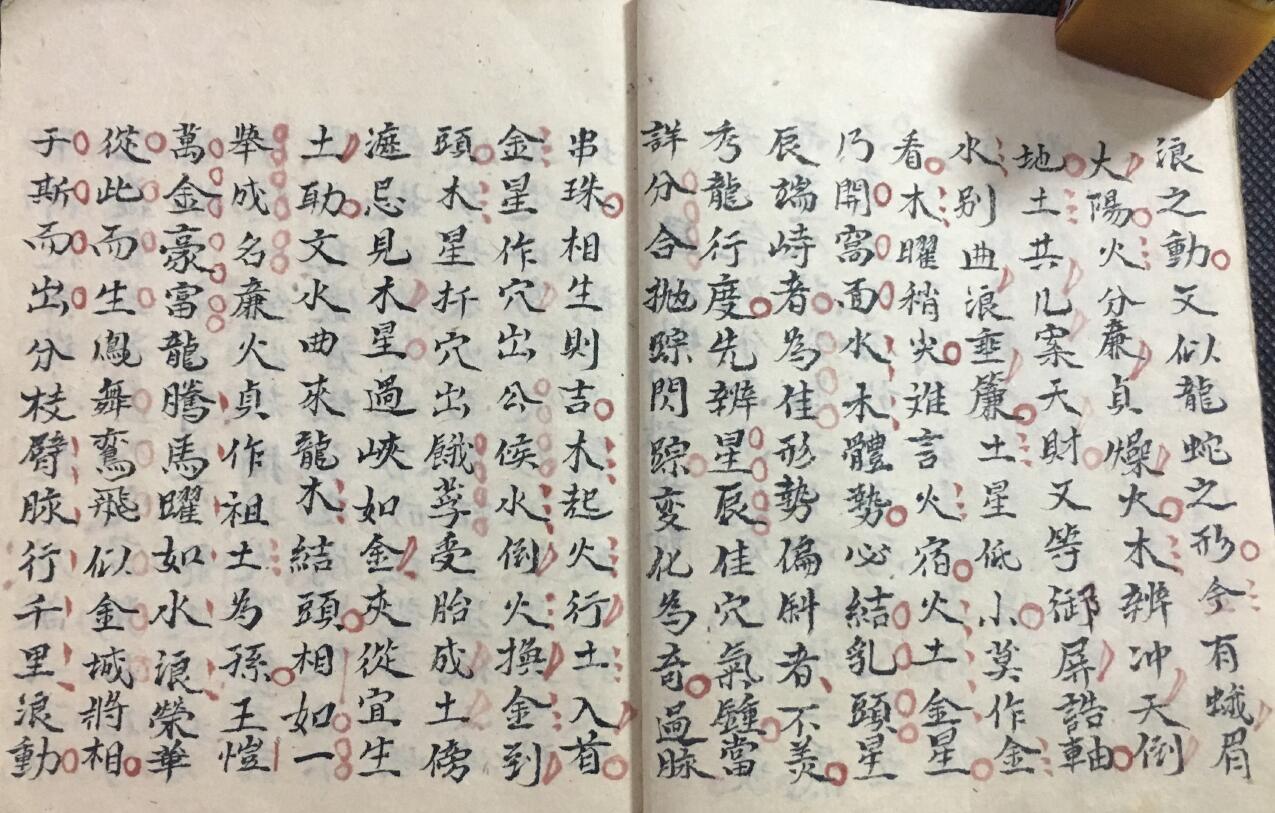 浪之動又似龍蛇之形令有蛾眉
太陽火分廉貞燥火木辨冲天倒
地土共几案天財又學御屏誥軸
水别曲浪垂簾土星低小莫作金
看木曜稍尖难言火宿火土金星
乃開窩面水木體勢必結乳頭星
辰端峙者為佳形勢偏斜者不羙
秀龍行度先辨星辰佳穴氣鍾當
詳分合抛踪閃踪变化為奇過脉
串珠相生則吉木起火行土入首
金星作穴出公侯水倒火換金到
頭木星扦穴出餓莩受胎成土傍
遮忌見木星過峽如金夾從宜生
土助文水曲來龍木結頭相如一
舉成名廉火貞作祖土為孫王愷
萬金豪富龍騰馬曜如水浪榮華
從此而生鳳舞鸞飛似金城將相
于斯而出分枝臂脉行千里浪動